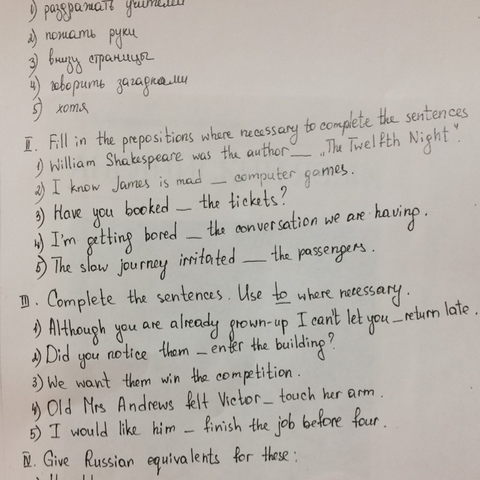 1) раздражать учителя
2) пожать руки
3) внизу страницы
4) говорить загадками
5) хотя
II. Fill in the prepositions where necessary to complete the sentences
1) William Shakespeare was the author __ „The Twelfth Night".
2) I know James is mad _ computer games.
3) Have you booked _ the tickets?
4) I'm getting bored _ the conversation we are having.
5) The slow journey irritated __ the passengers.
III. Complete the sentences. Use to where necessary.
1) Although you are already grown-up I can't let you _ return late.
2) Did you notice them _ enter the building?
3) We want them win the competition.
4) Old Mrs Andrews felt Victor _ touch her arm.
5) I would like him _ finish the job before four.
IV. Give Russian equivalents for these: